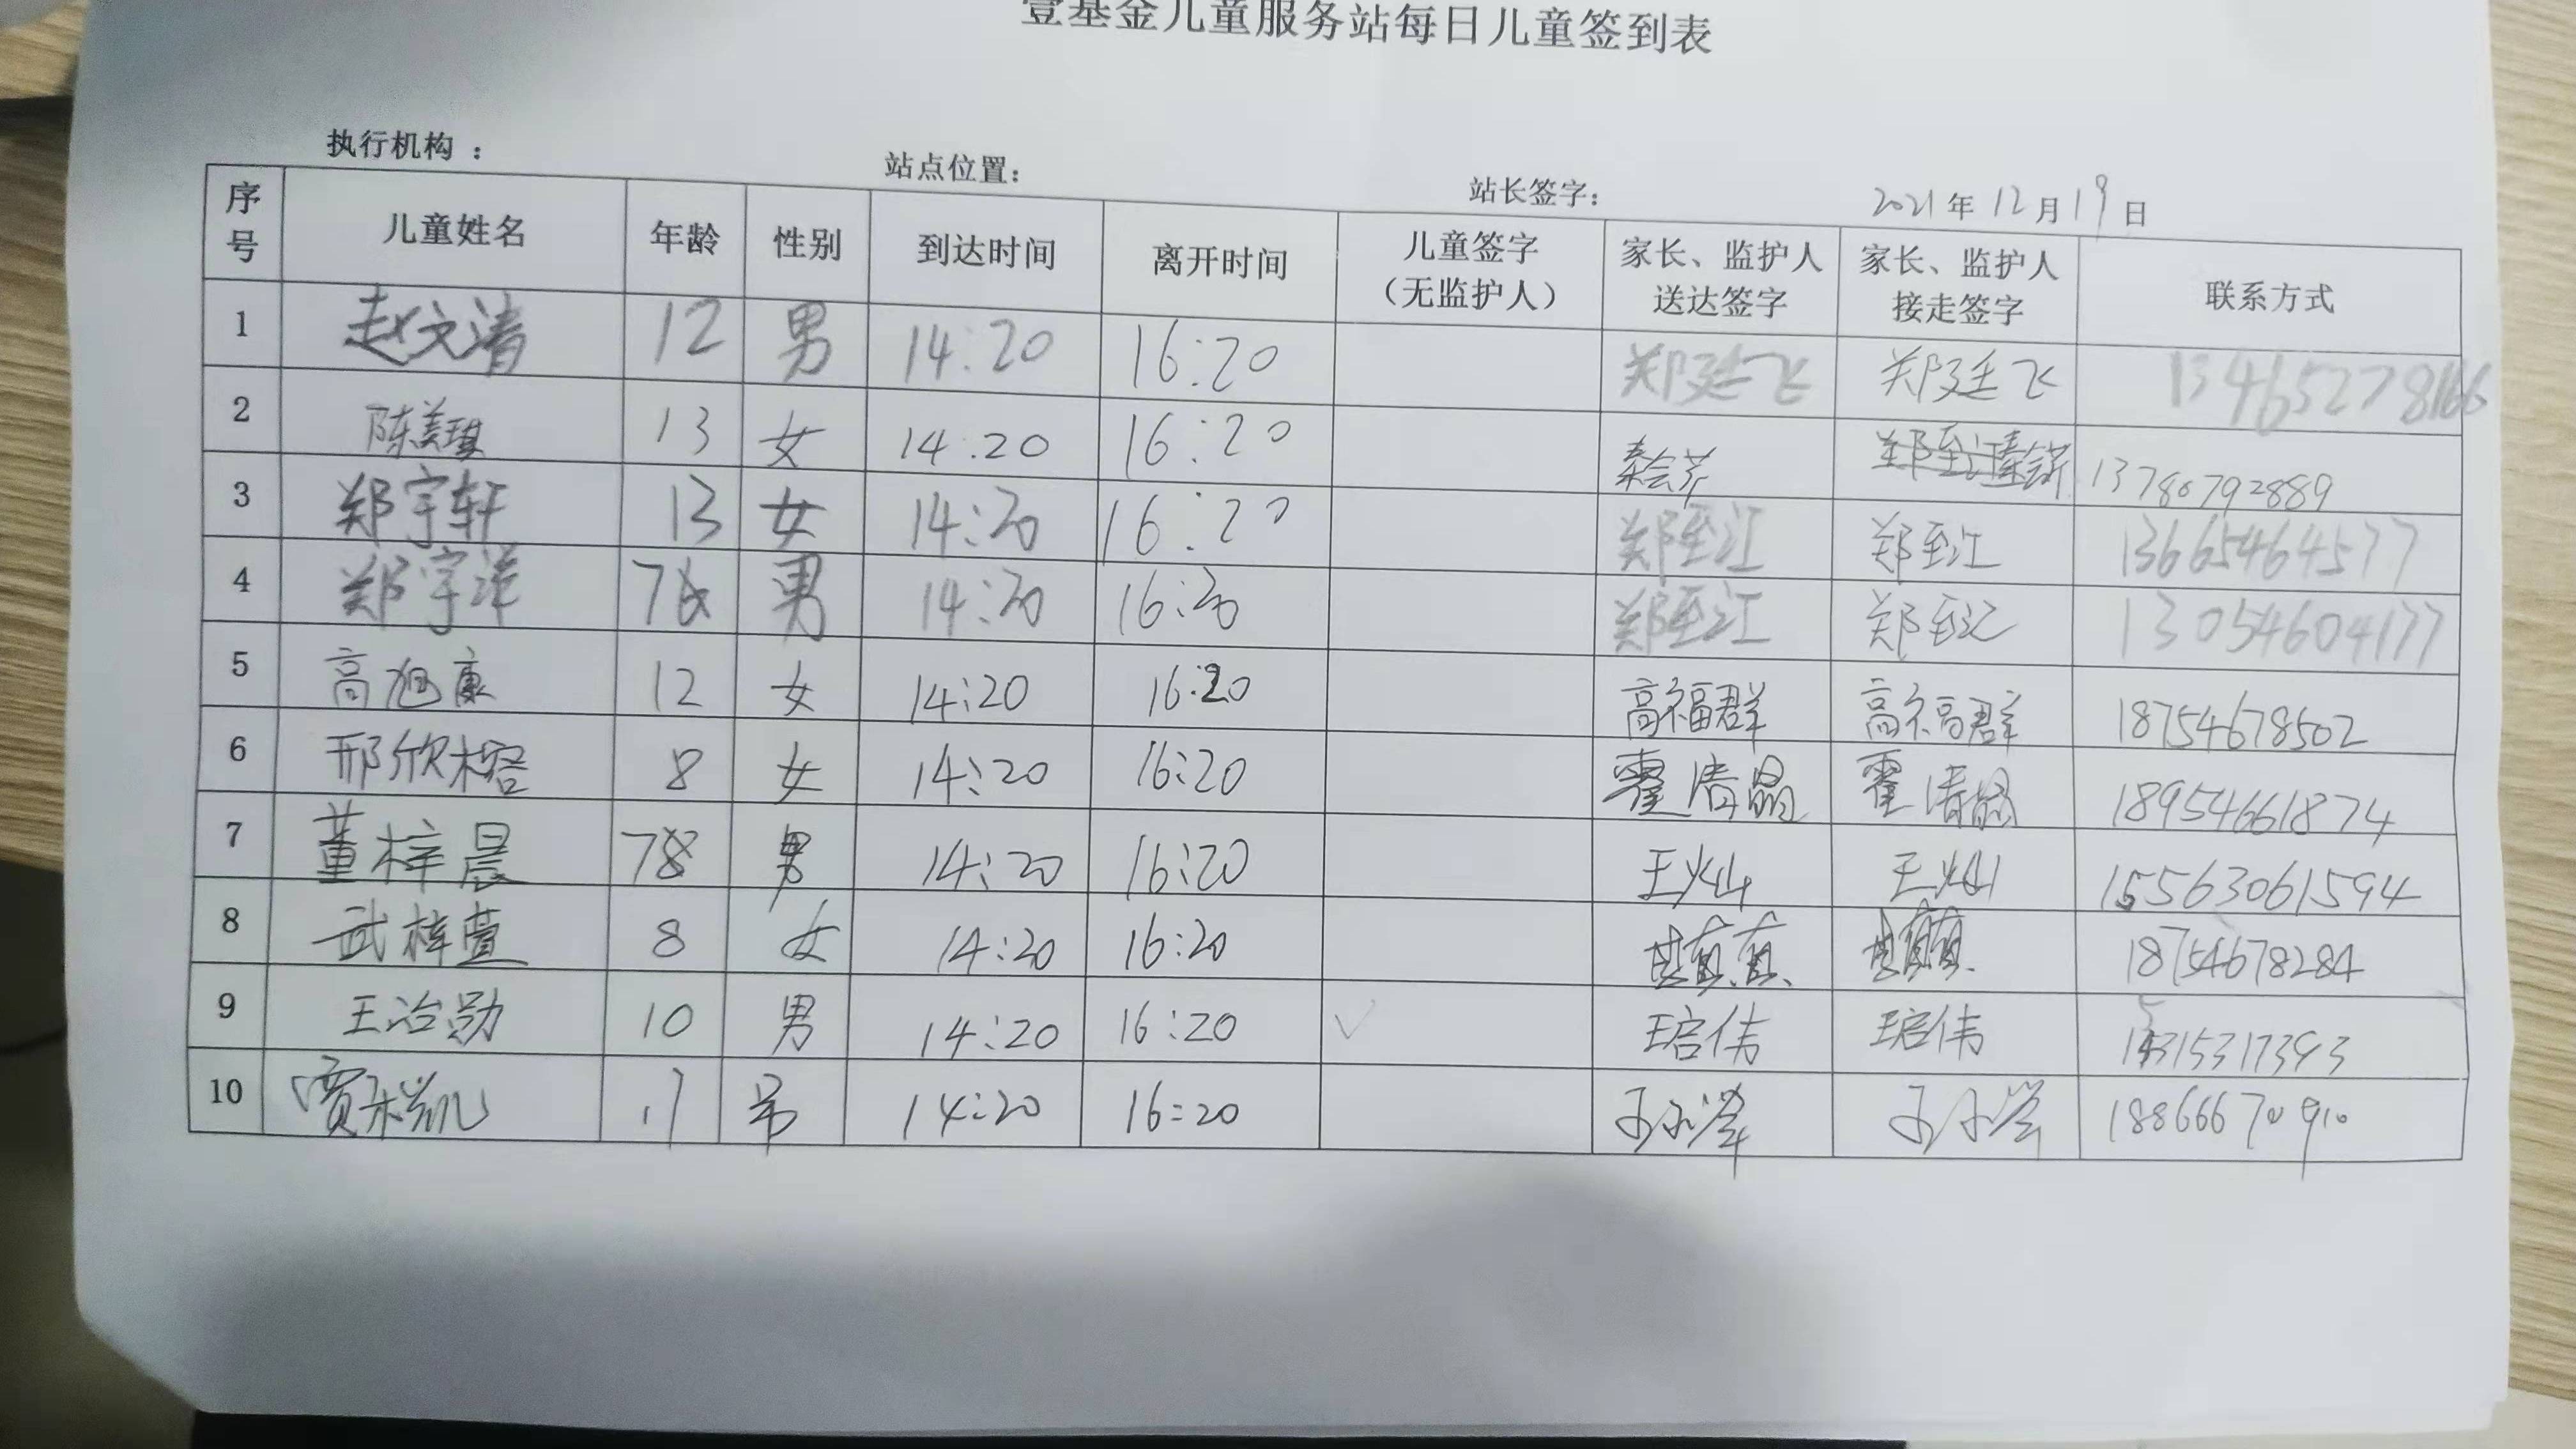 壹基金儿童服务站每日儿童签到表
执行机构： 站点位置： 站长签字： 2021年12月19日
序号 儿童姓名 年龄 性别 到达时间 离开时间 儿童签字（无监护人） 家长、监护人送达签字 家长、监护人接走签字 联系方式
1 赵文清 12 男 14:20 16:20 郑廷飞 郑廷飞 13465278166
2 陈美琪 13 女 14:20 16:20 秦会芹 秦会芹 13780792889
3 郑宇轩 13 女 14:20 16:20 郑至江 郑至江 13665464577
4 郑宇洋 7 男 14:20 16:20 郑至江 郑至江 13054604177
5 高旭康 12 女 14:20 16:20 高福群 高福群 18754678502
6 邢欣榕 8 女 14:20 16:20 霍清晶 霍清晶 18954661874
7 董梓晨 7 男 14:20 16:20 王灿 王灿 15563061594
8 武梓萱 8 女 14:20 16:20 18754678284
9 王冶勋 10 男 14:20 16:20 √ 王启伟 王启伟 15315317393
10 贾 凯 11 男 14:20 16:20 18866670910